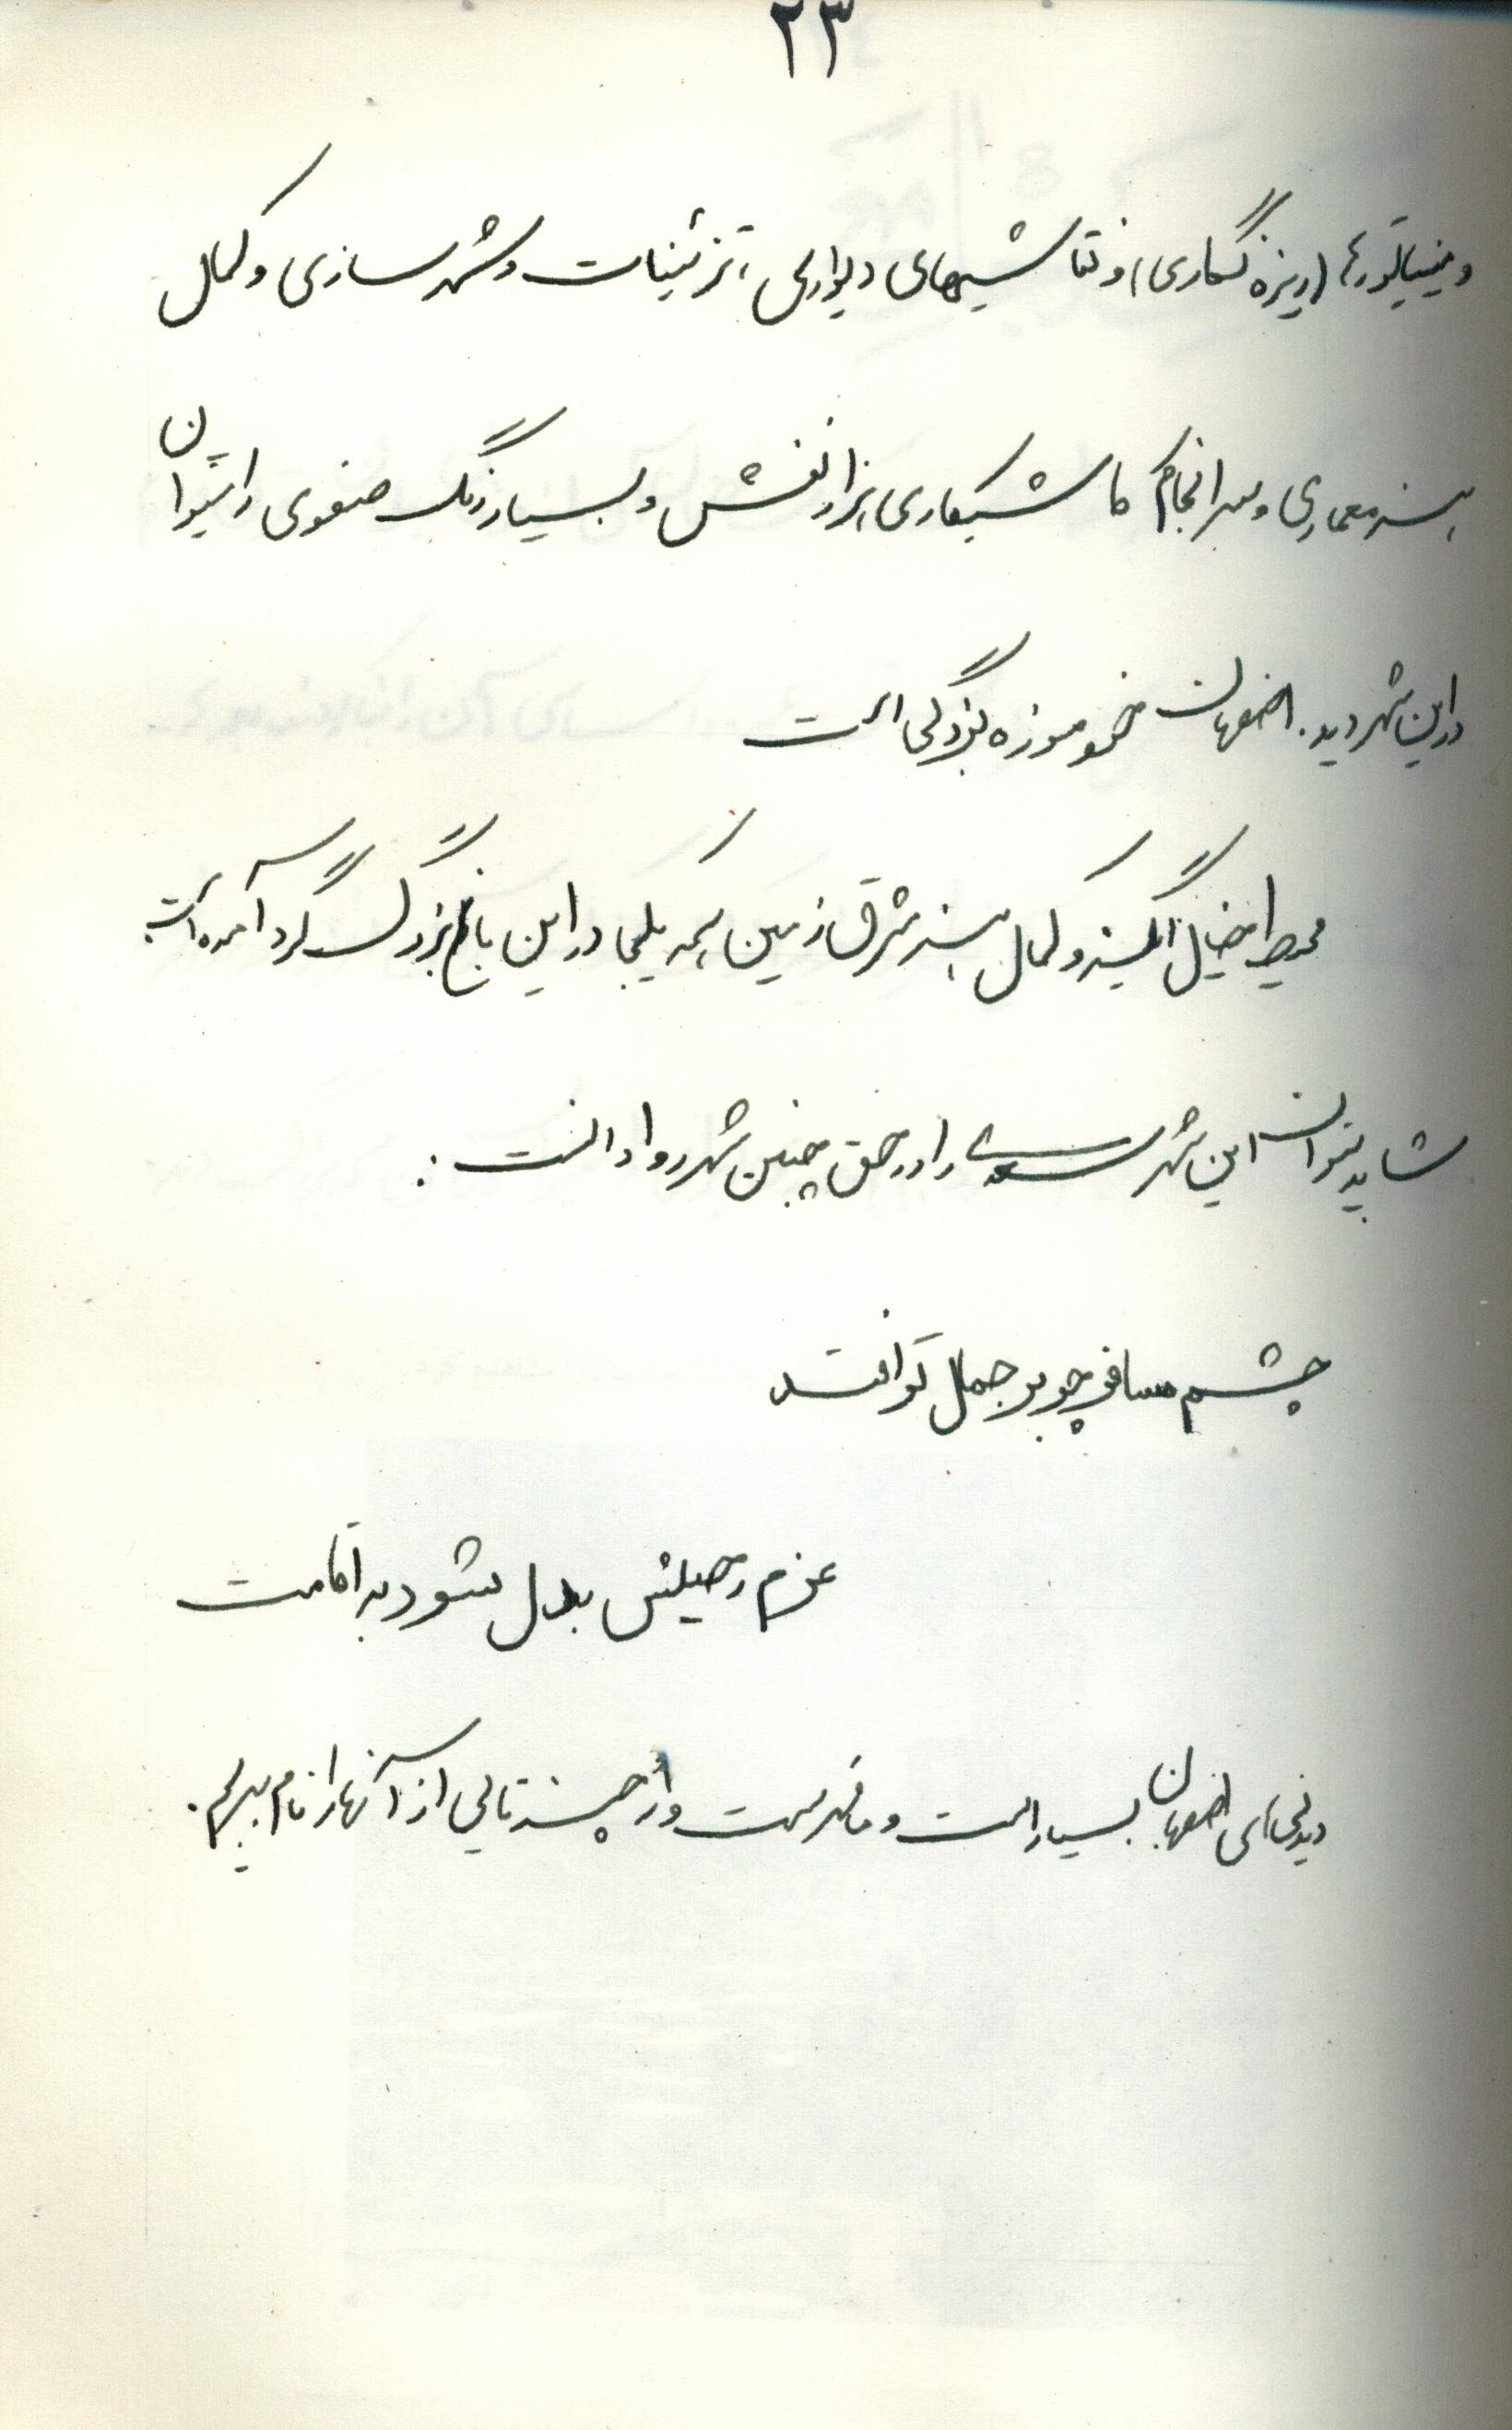 ۲۳
و مینیاتورها (ریزه نگاری) و نقاشیهای دیواری، تزئینات و شهرسازی و کمال
هنر معماری و سرانجام کاشیکاری هزار نقش و بسیار رنگ صفوی را میتوان
در این شهر دید. اصفهان خود موزه بزرگی است
محیط خیال انگیز و کمال هنر مشرق زمین همه یکجا در این باغ بزرگ گرد آمده است.
شاید بتوان این شعر سعدی را در حق چنین شهر روا دانست :
چشم مسافر چو بر جمال تو افتد
عزم رحیلش بدل شود به اقامت
دیدنی های اصفهان بسیار است و ما فهرست وار چند تایی از آنها را نام میبریم.